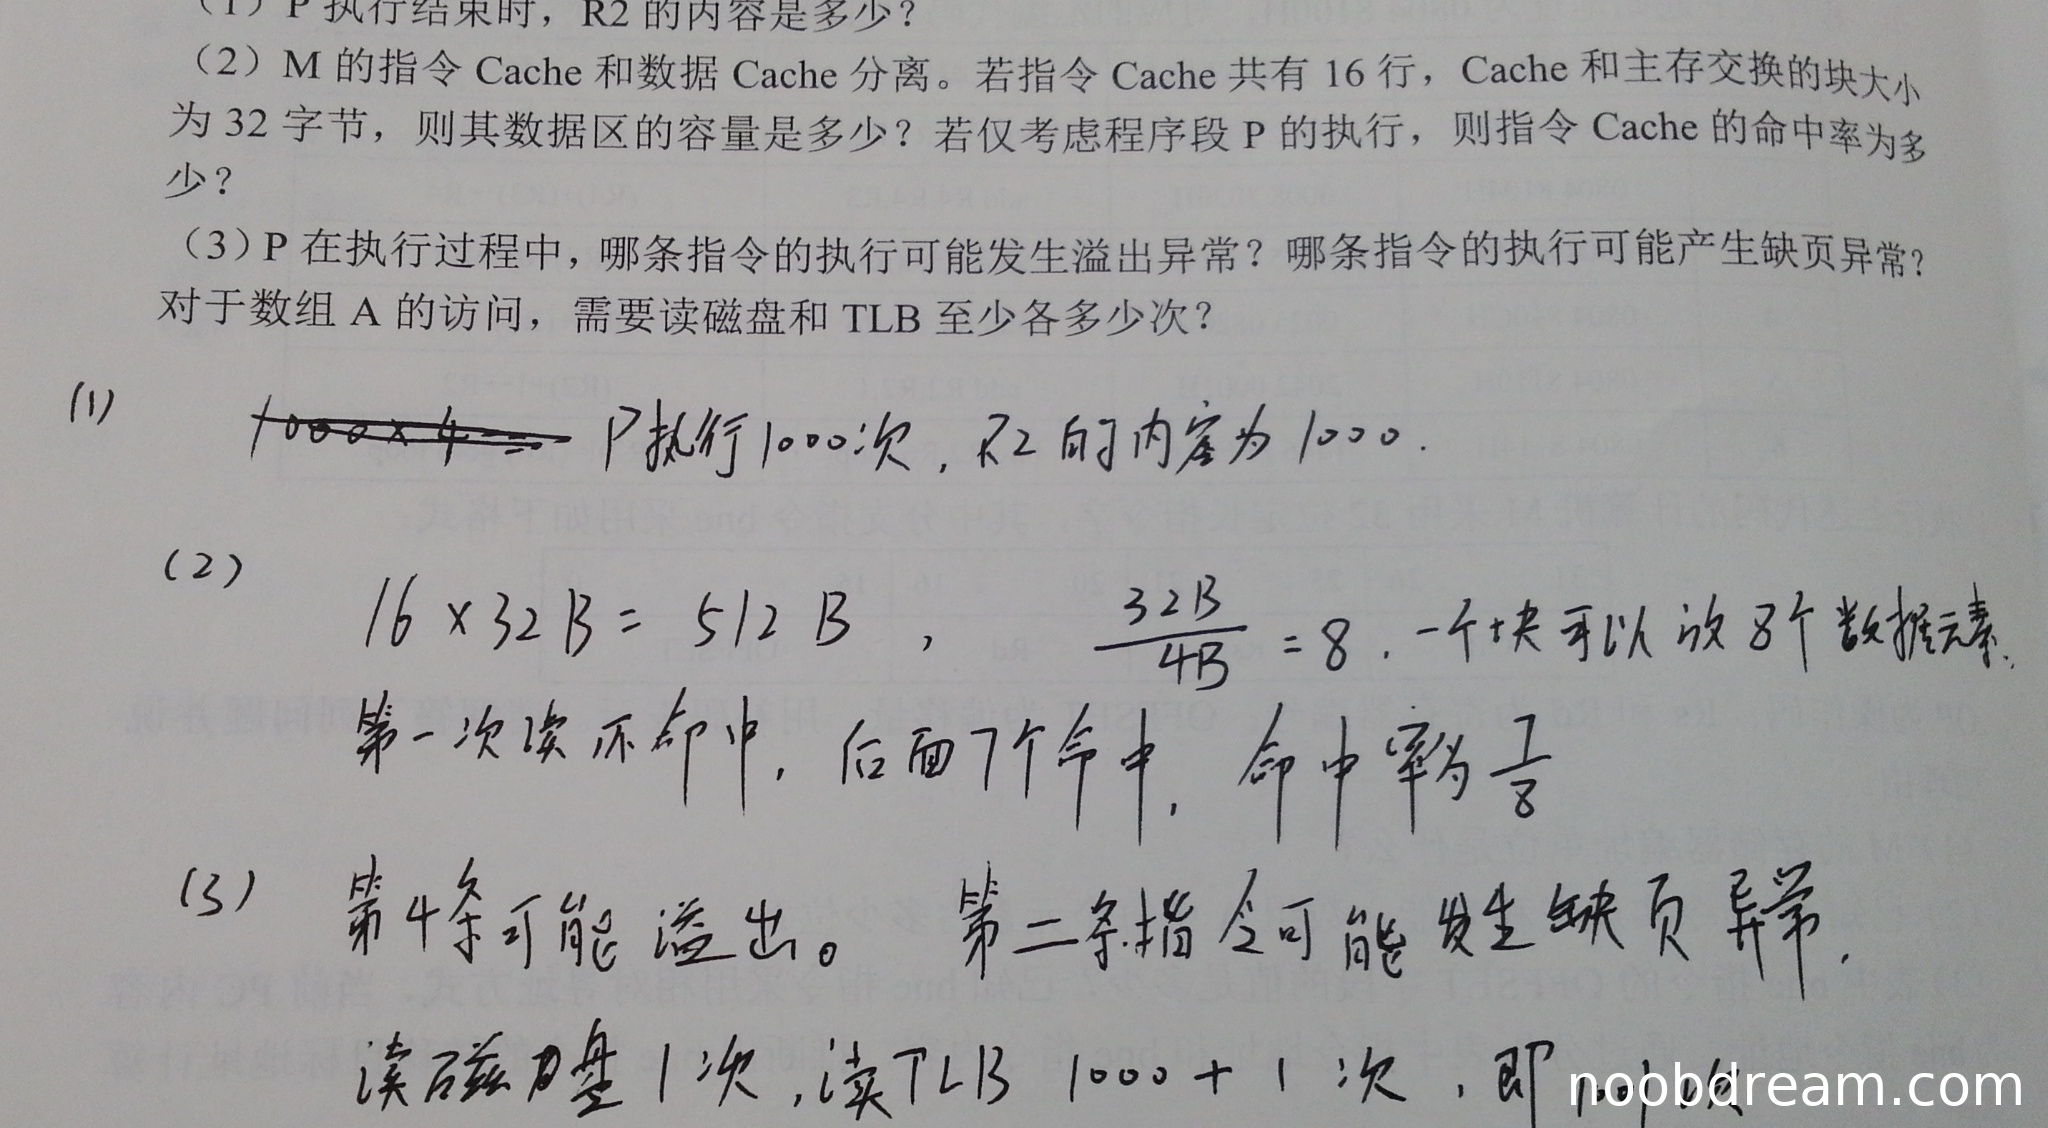 （1）P 执行结束时，R2 的内容是多少？
（2）M 的指令 Cache 和数据 Cache 分离。若指令 Cache 共有 16 行，Cache 和主存交换的块大小
为 32 字节，则其数据区的容量是多少？若仅考虑程序段 P 的执行，则指令 Cache 的命中率为多
少？
（3）P 在执行过程中，哪条指令的执行可能发生溢出异常？哪条指令的执行可能产生缺页异常？
对于数组 A 的访问，需要读磁盘和 TLB 至少各多少次？
(1) 1000×4= P执行1000次，R2的内容为1000.
(2) 16×32B=512B，32B/4B=8．一个块可以放8个数据元素.
第一次读不命中，后面7个命中，命中率为7/8
(3) 第4条可能溢出。第二条指令可能发生缺页异常．
读磁盘1次，读TLB 1000+1次，即1001次
noobdream.com